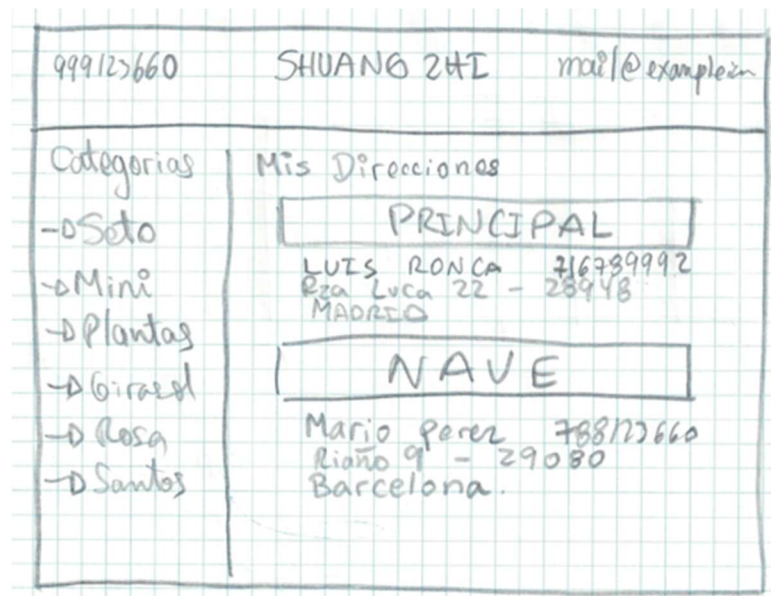 999123660 SHUANG ZHI mail@example.in
Categorias
-DSeto
-DMini
-DPlantas
-DGirasol
-DRosa
-DSantos
Mis Direcciones
PRINCIPAL
LUIS RONCA 716789992
Pza Luca 22 - 28948
MADRID
NAVE
Mario Perez 788123660
Riaño 9 - 29080
Barcelona.